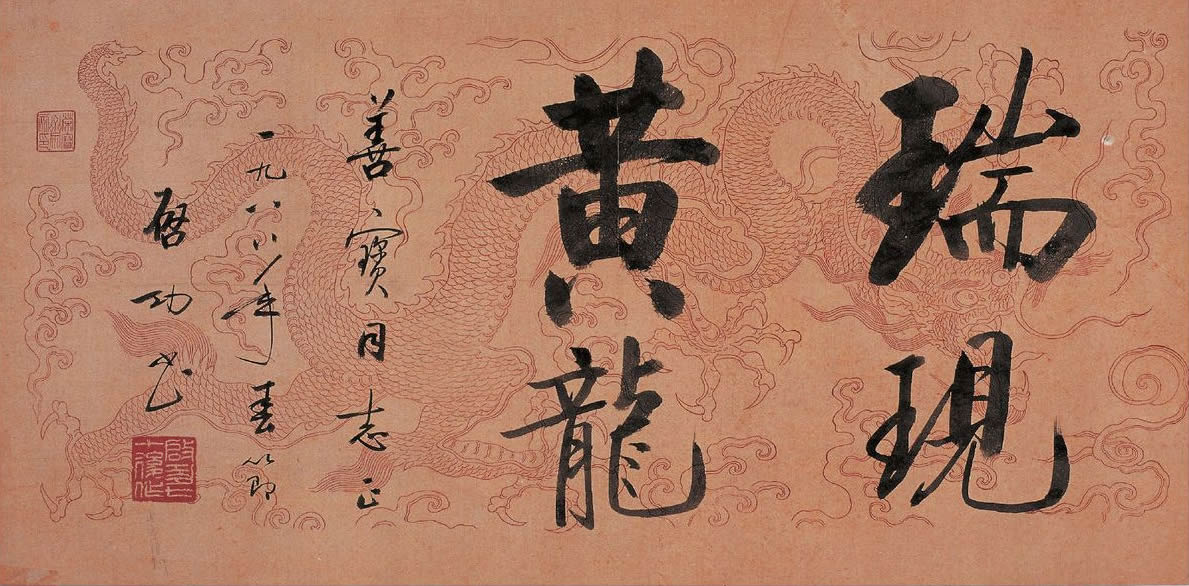 瑞現
黄龍
善寶同志正
一九八八年春節
启功书